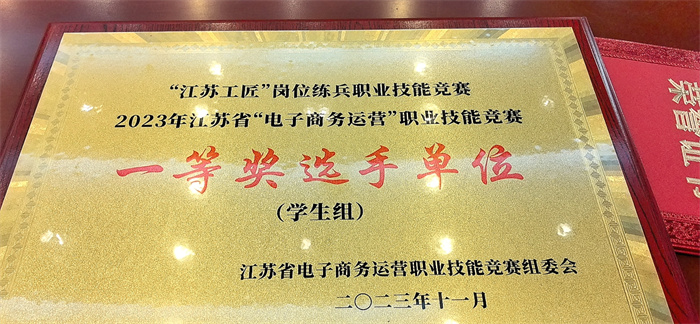 “江苏工匠”岗位练兵职业技能竞赛
2023年江苏省“电子商务运营”职业技能竞赛
一等奖选手单位
（学生组）
江苏省电子商务运营职业技能竞赛组委会
二〇二三年十一月
荣誉证书